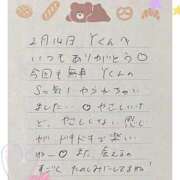 2月14日 Yくんへ
いつもありがとう♡
今回も無事 Yくんの
Sっ気! やられちゃい
ました… ♡ やさしい
ど、やさしくない感じ
がドキドキで楽しい
ね ♡ また、会えるの
すごく たのしみにしてますね!